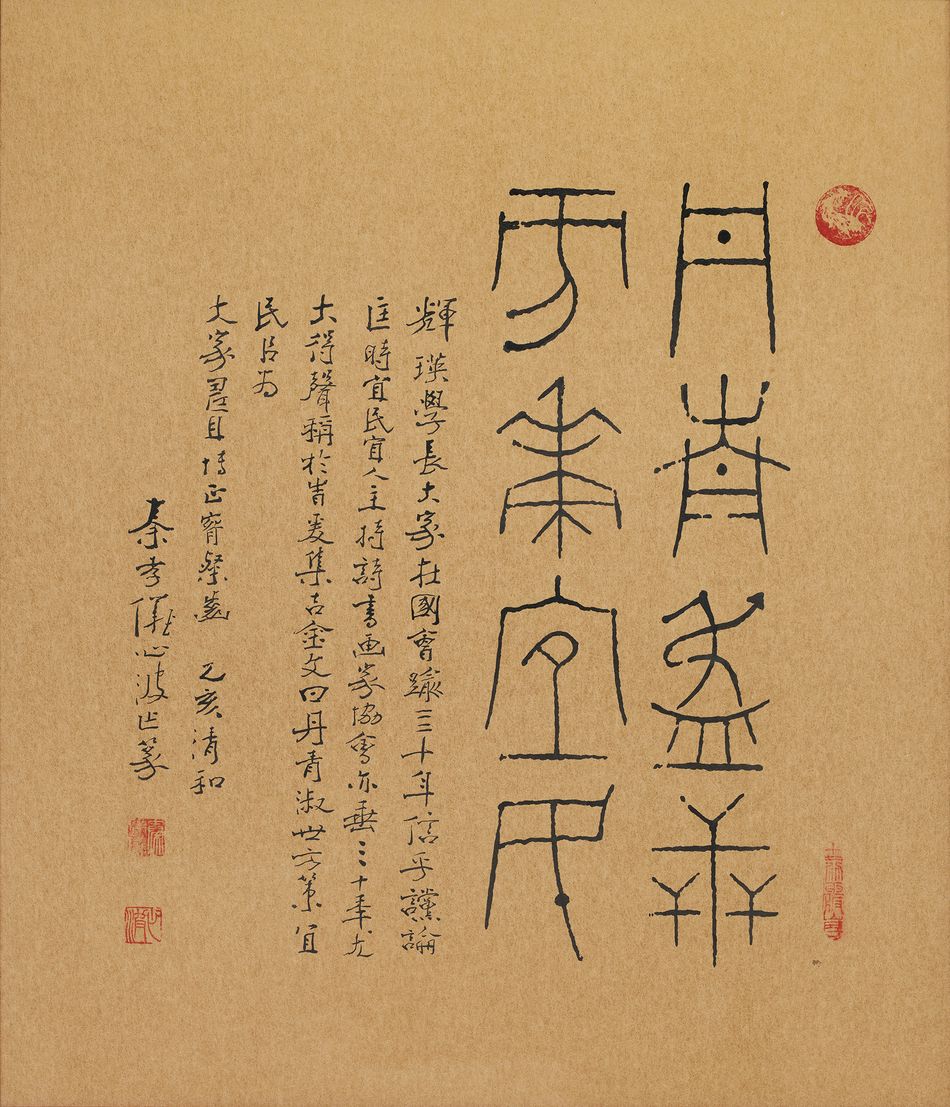 丹青淑世
方策宜民
輝瑛學長大家在國會踰三十年信乎讜論
匡時宜民宜人主持詩書画家協會亦垂三十年尤
大得聲稱於爰集古金文曰丹青淑世方策宜
民㠯为
大家正粲 乙亥清和
秦孝儀心波篆
心波